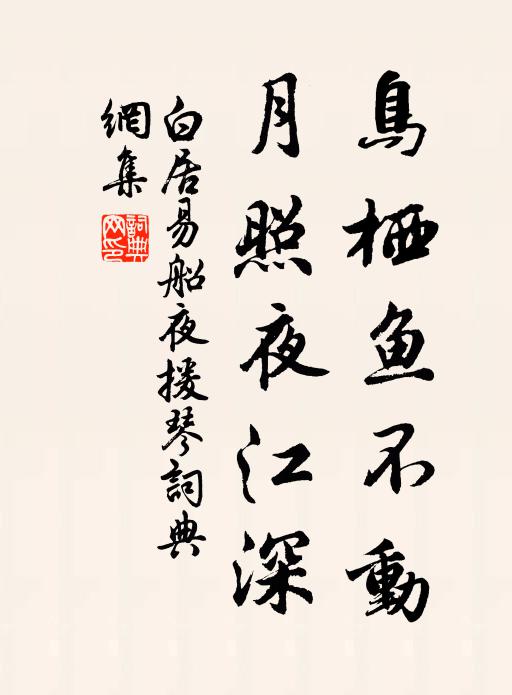 鳥栖魚不動
月照夜江深
白居易船夜援琴詞典
網集
詞典
网印